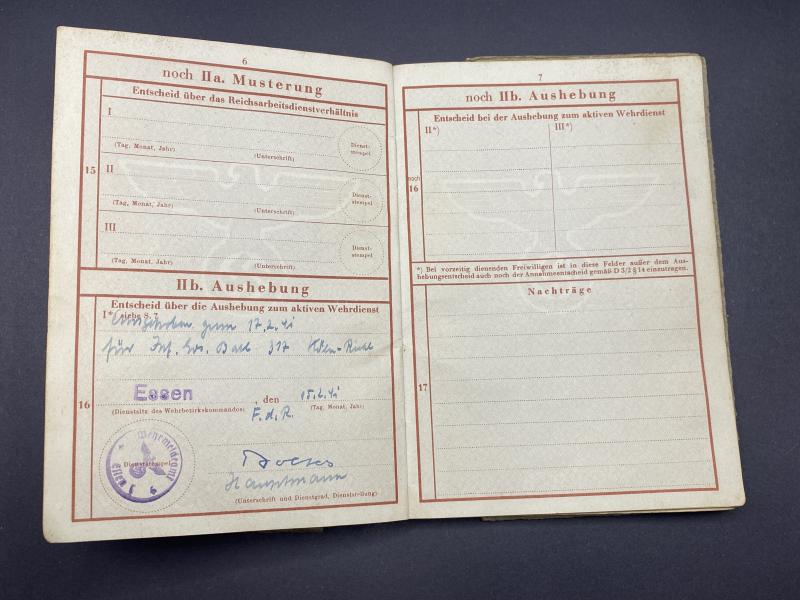 6
noch IIa. Musterung
Entscheid über das Reichsarbeitsdienstverhältnis
I
(Tag, Monat, Jahr) (Unterschrift)
Dienst-
stempel
15
II
(Tag, Monat, Jahr) (Unterschrift)
Dienst-
stempel
III
(Tag, Monat, Jahr) (Unterschrift)
Dienst-
stempel
IIb. Aushebung
Entscheid über die Aushebung zum aktiven Wehrdienst
I*) siehe S. 7
zum 17.2.41
für Inf. Ers. Batl. 317 Köln-Riehl
16
Essen, den 15.2.41
(Dienstsitz des Wehrbezirkskommandos) (Tag, Monat, Jahr)
F.d.R.
Wehrmeldeamt
Essen 6
Dienststempel
Hauptmann
(Unterschrift und Dienstgrad, Dienststellung)
7
noch IIb. Aushebung
Entscheid bei der Aushebung zum aktiven Wehrdienst
II*) III*)
noch
16
*) Bei vorzeitig dienenden Freiwilligen ist in diese Felder außer dem Aus-
hebungsentscheid auch noch der Annahmeentscheid gemäß D 3/2 § 14 einzutragen.
Nachträge
17